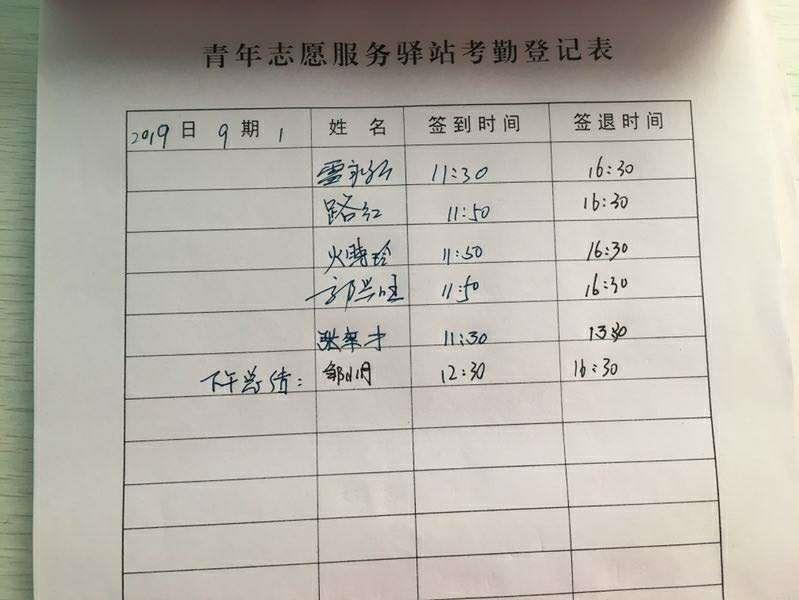 青年志愿服务驿站考勤登记表
2019日 9期 1 姓名 签到时间 签退时间
11:30 16:30
路红 11:50 16:30
火 玲 11:50 16:30
郭兴旺 11:50 16:30
张 才 11:30 13:30
下午总结: 邹 12:30 16:30